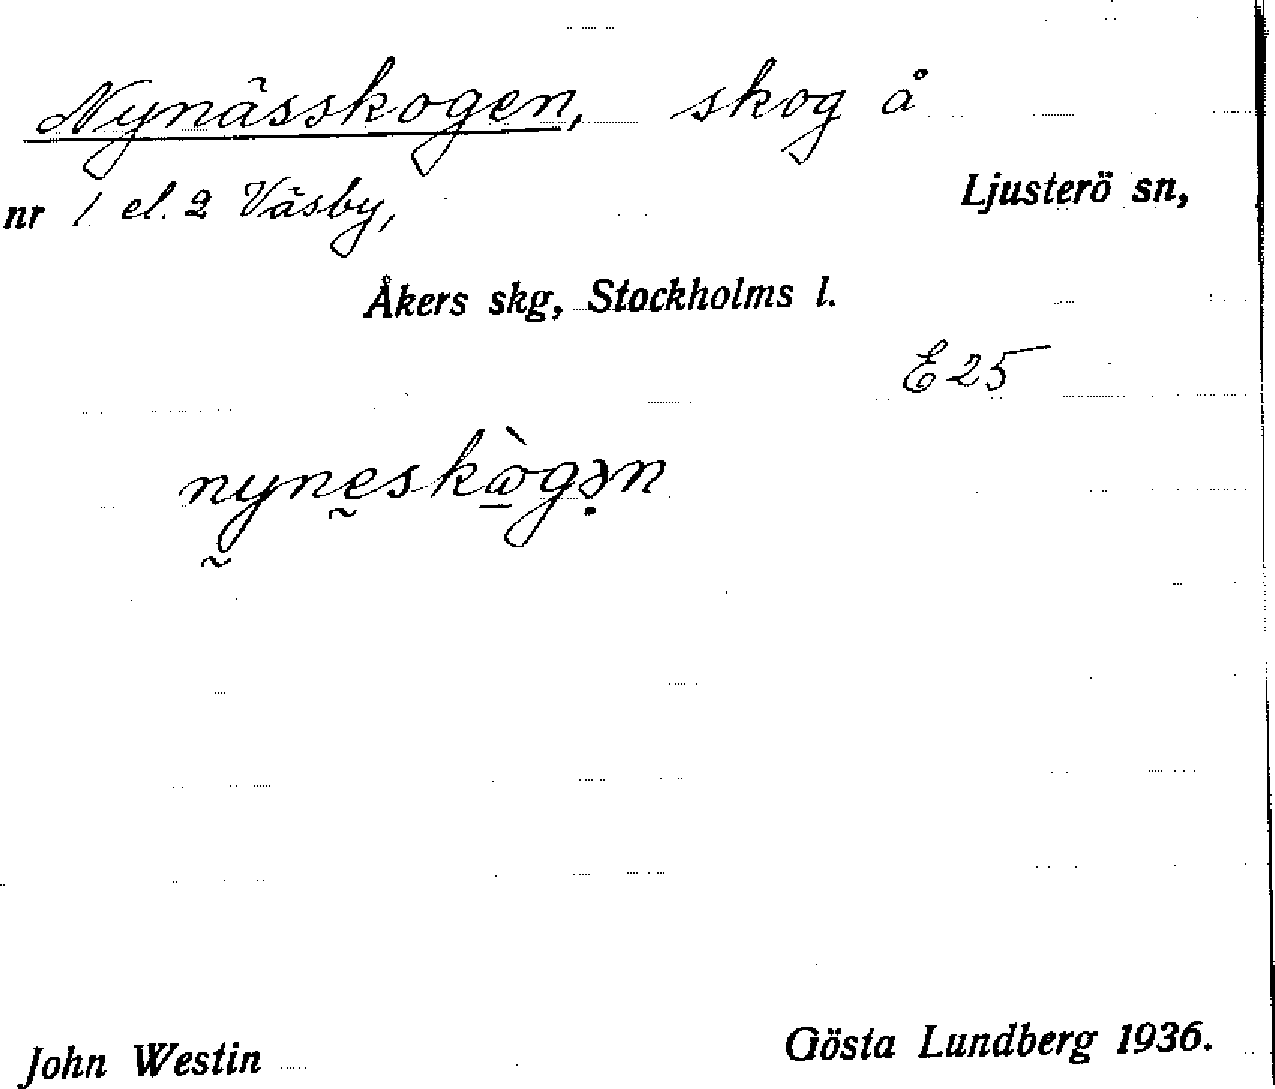 Nynässkogen, skog å
nr 1 el. 2 Väsby, Ljusterö sn,
Åkers skg, Stockholms l.
E 25
nyneskògən
John Westin Gösta Lundberg 1936.